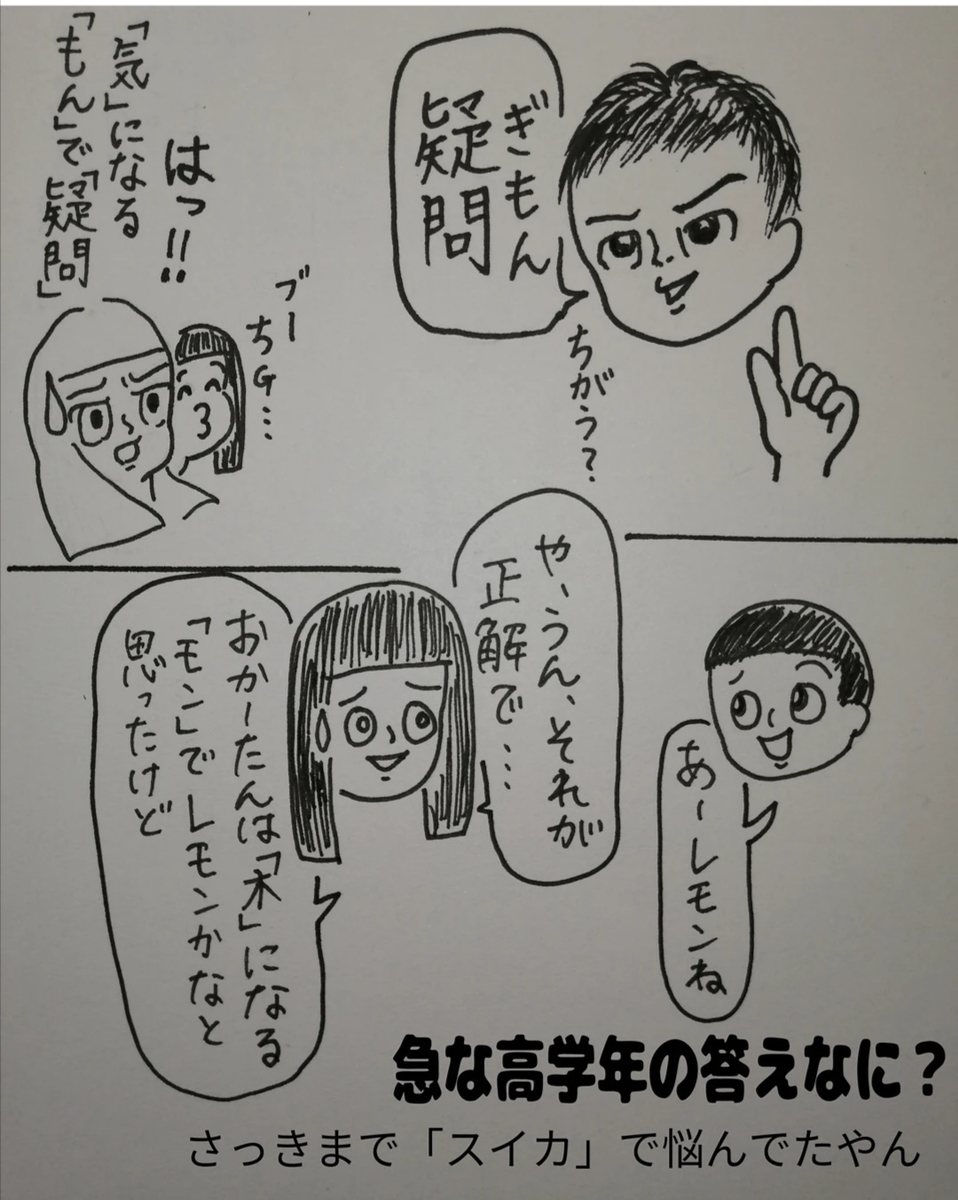 ぎもん
疑問
ちがう?
ブー
ちG…
はっ!!
「気」になる
「もん」で「疑問」
あーレモンね
や、うん、それが
正解で…
おかーたんは「木」になる
「モン」でレモンかなと
思ったけど
急な高学年の答えなに?
さっきまで「スイカ」で悩んでたやん